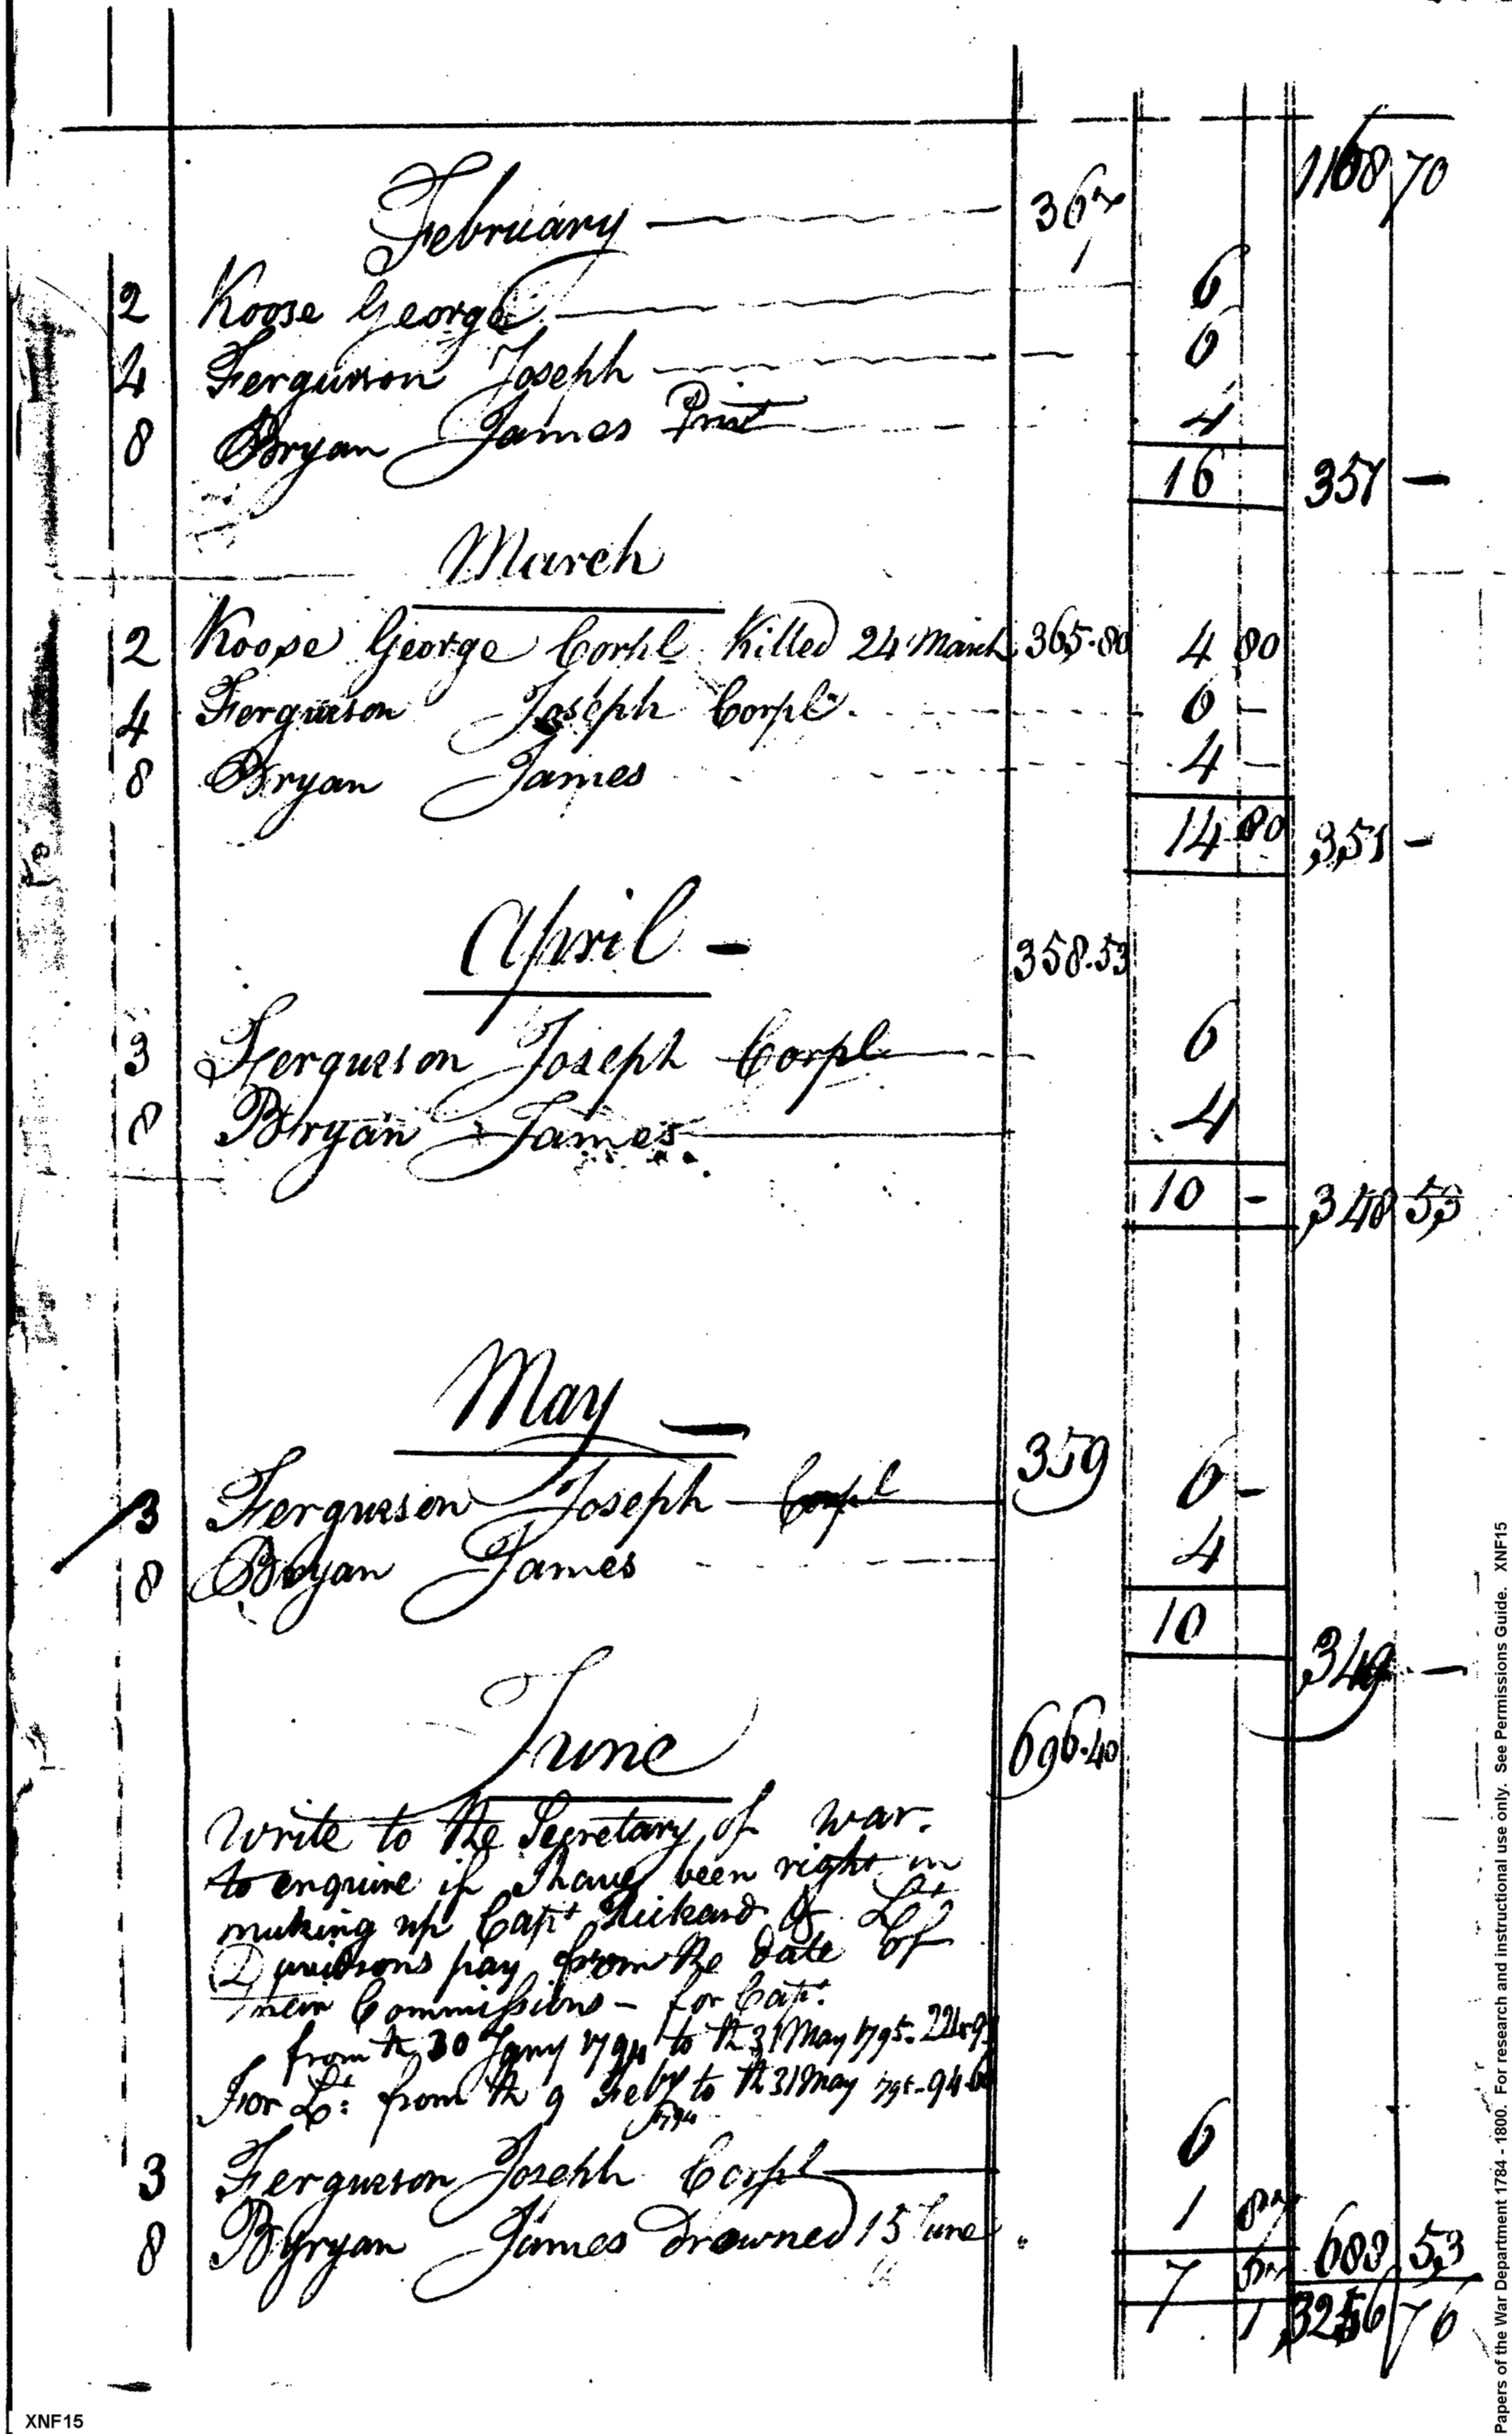 1168 70
February 367
2 Koose George 6
4 Ferguson Joseph 6
8 Bryan James Privt 4
16 351 —
March
2 Koose George Corpl Killed 24 March 365.80 4 80
4 Ferguson Joseph Corpl 6 —
8 Bryan James 4 —
14 80 351 —
April — 358.53
3 Ferguson Joseph Corpl 6
8 Bryan James 4
10 - 348 53
May — 359
3 Ferguson Joseph Corpl 6 -
8 Bryan James 4
10 349 —
June 696.40
Write to the Secretary of War.
to enquire if I have been right in
making up Capt Rickard & Lt
Davidsons pay from the date of
their Commissions — for Capt.
from th 30 Jany 1794 to th 31 May 1795.
For Lt: from th 9 Feby to th 31 May 795 - 94.6
1794
3 Ferguson Joseph Corpl 6
8 Bryan James Drowned 15 June 1 87
7 87 688 53
1 3256 76
Papers of the War Department 1784 - 1800. For research and instructional use only. See Permissions Guide. XNF15
XNF15